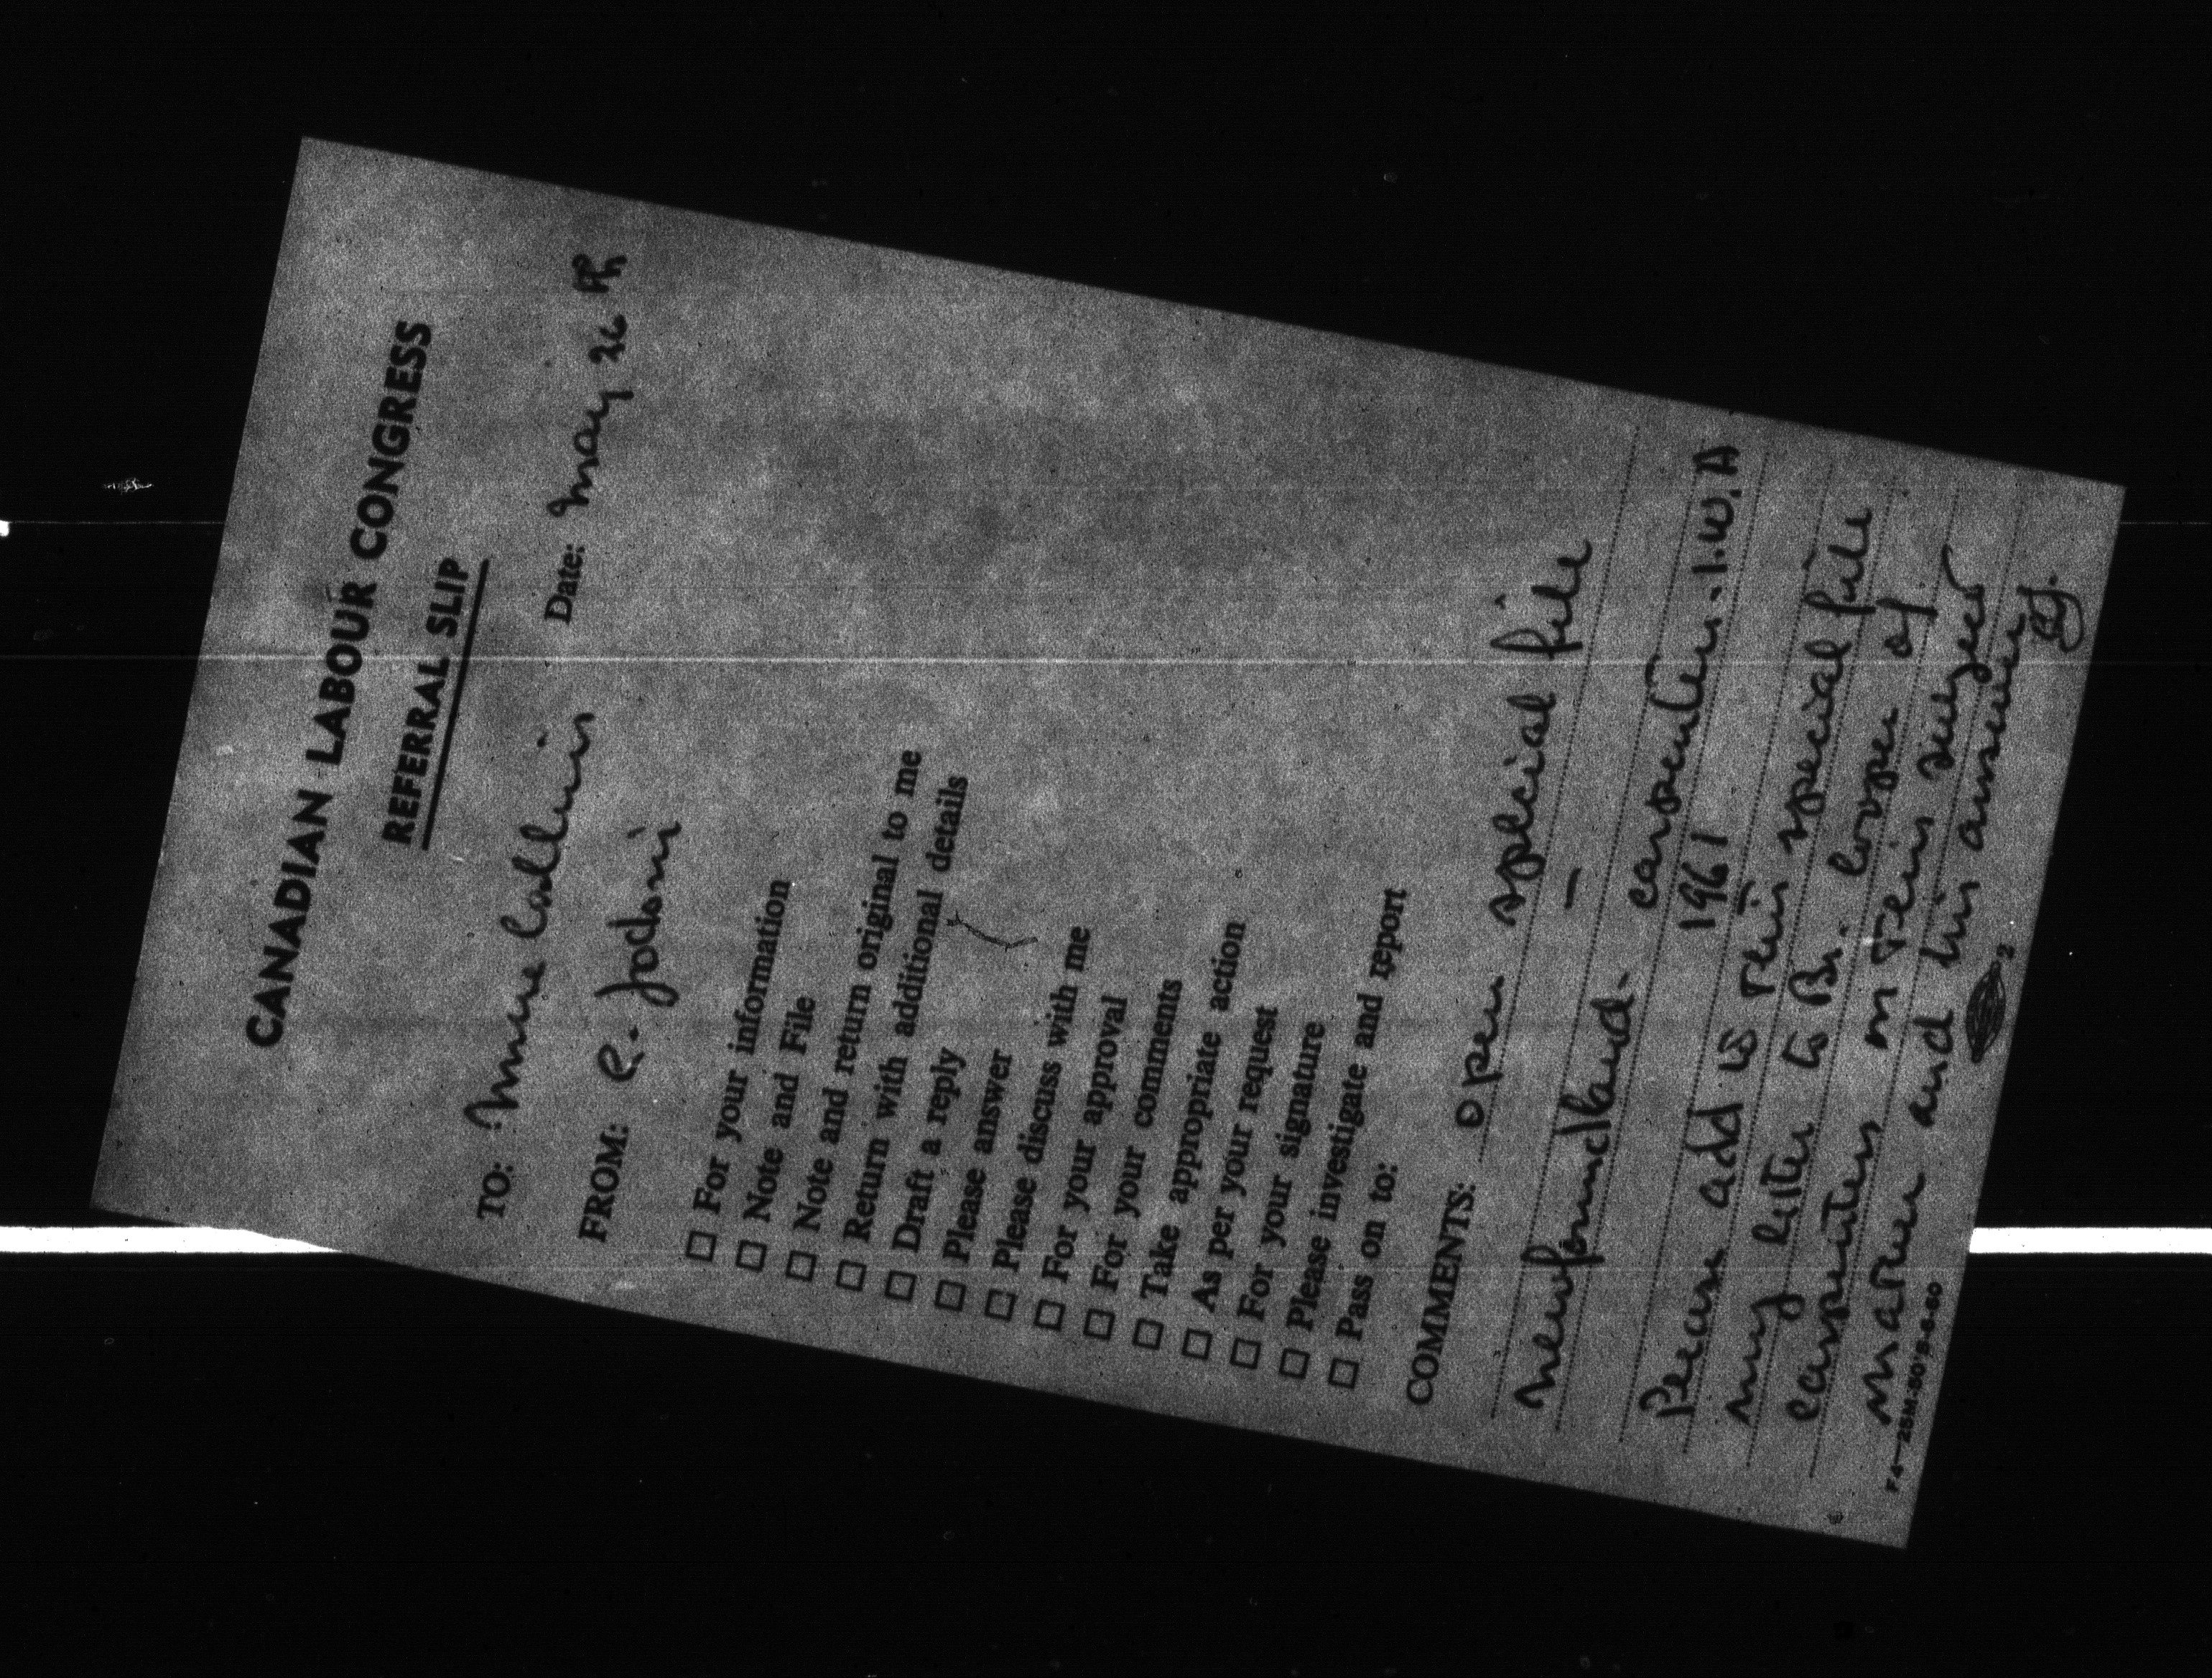 CANADIAN LABOUR CONGRESS
REFERRAL SLIP
TO: Mme Collin Date: May 26
FROM: R. Jodoin
☐ For your information
☐ Note and File
☐ Note and return original to me
☐ Return with additional details
☐ Draft a reply
☐ Please answer
☐ Please discuss with me
☐ For your approval
☐ For your comments
☐ Take appropriate action
☐ As per your request
☐ For your signature
☐ Please investigate and report
☐ Pass on to:
COMMENTS: Open special file
—
Newfoundland. carpenters. I.W.A
1961
Please add to this special file
my letter to Br. Cooper of
carpenters on this subject
matter and his answer